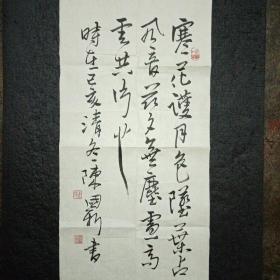 寒花護月色墜葉占
風音茲夕無塵慮高
雲共片心
時在己亥清冬陳國新書